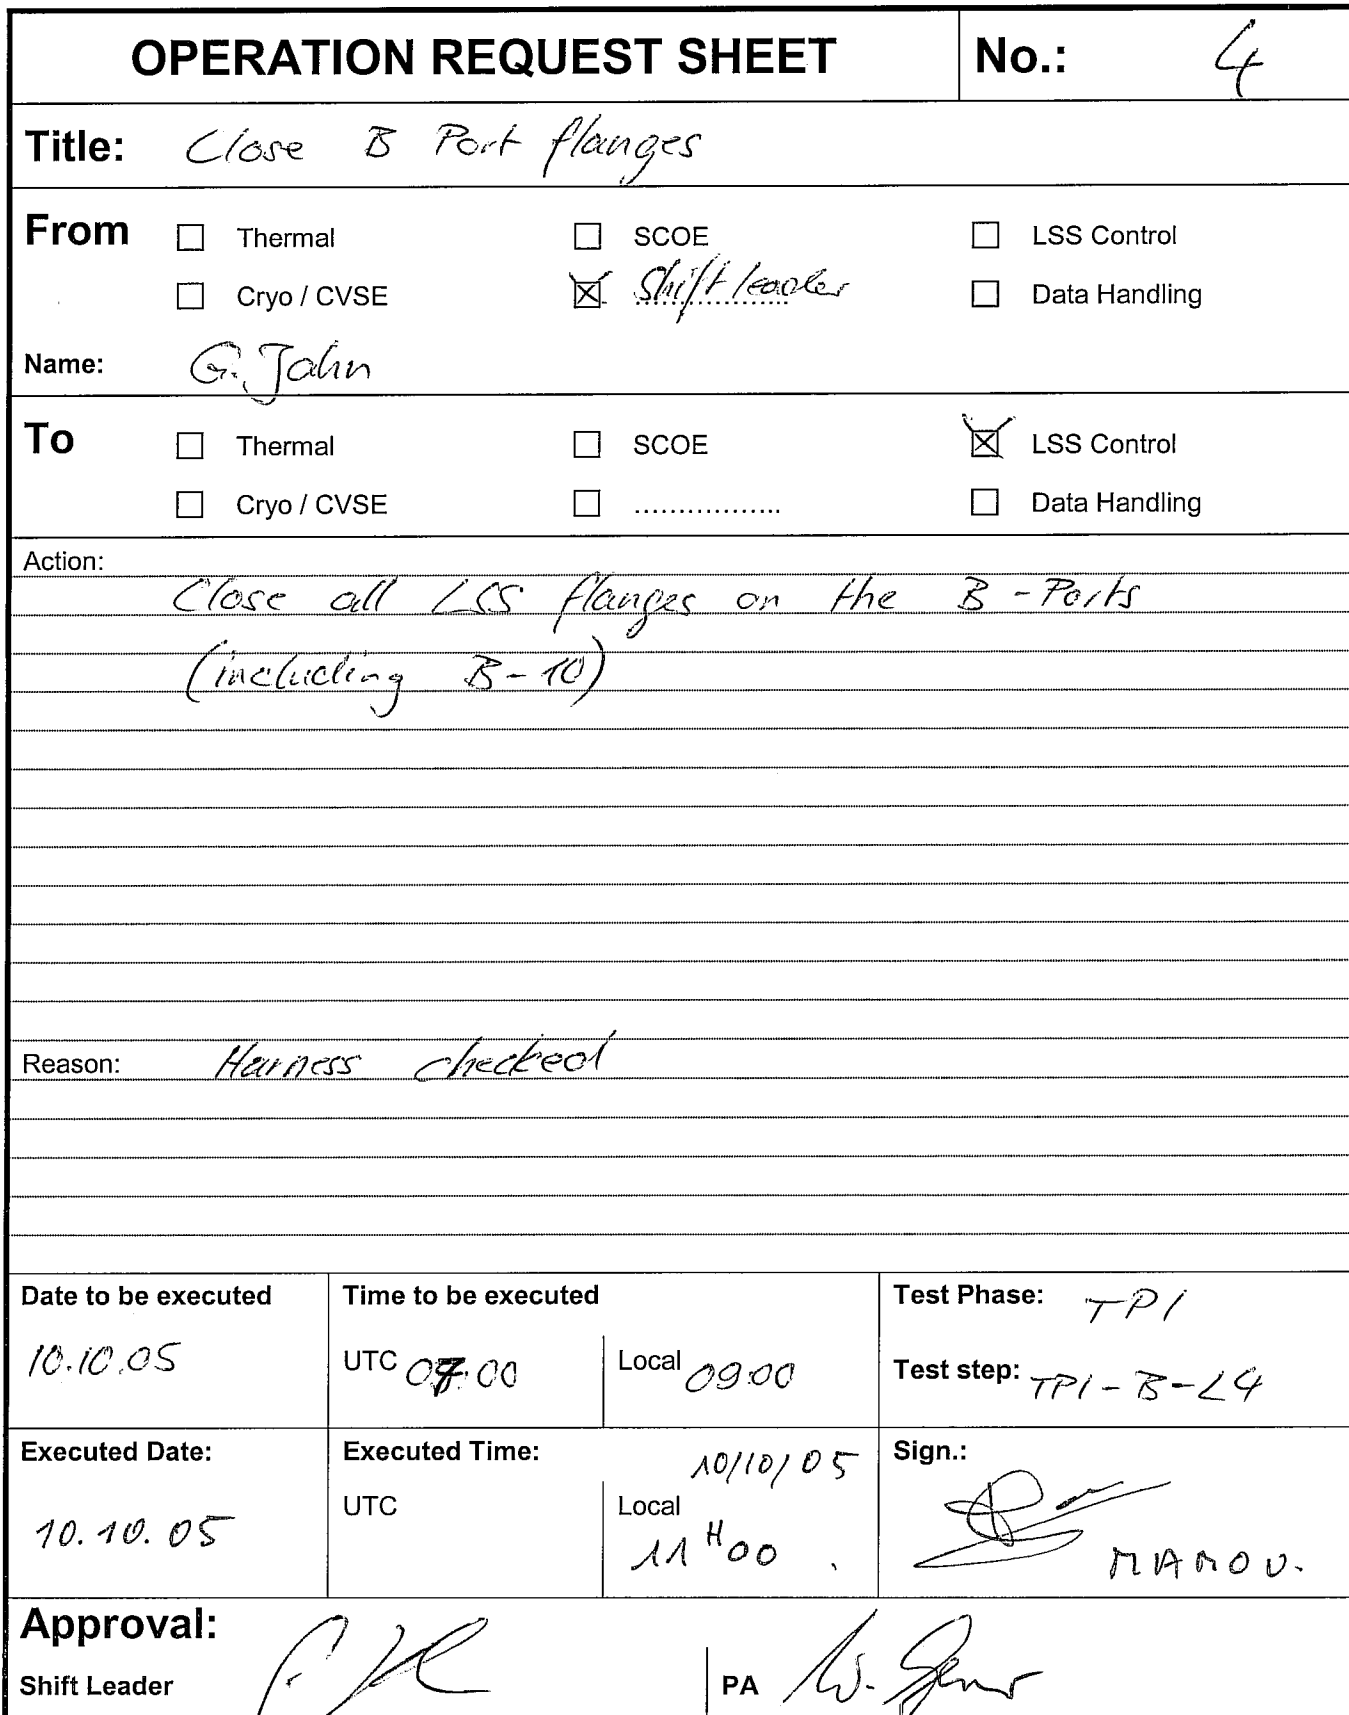 OPERATION REQUEST SHEET No.: 4
Title: Close B Port flanges
From ☐ Thermal ☐ SCOE ☐ LSS Control
☐ Cryo / CVSE ☒ Shift leader ☐ Data Handling
Name: G. John
To ☐ Thermal ☐ SCOE ☒ LSS Control
☐ Cryo / CVSE ☐ ................. ☐ Data Handling
Action:
Close all LSS flanges on the B-Ports
(including B-10)
Reason: Harness checked
Date to be executed Time to be executed Test Phase: TP1
10.10.05 UTC 07:00 Local 09:00 Test step: TP1-B-L4
Executed Date: Executed Time: 10/10/05 Sign.:
10.10.05 UTC Local 11H00
Approval:
Shift Leader PA